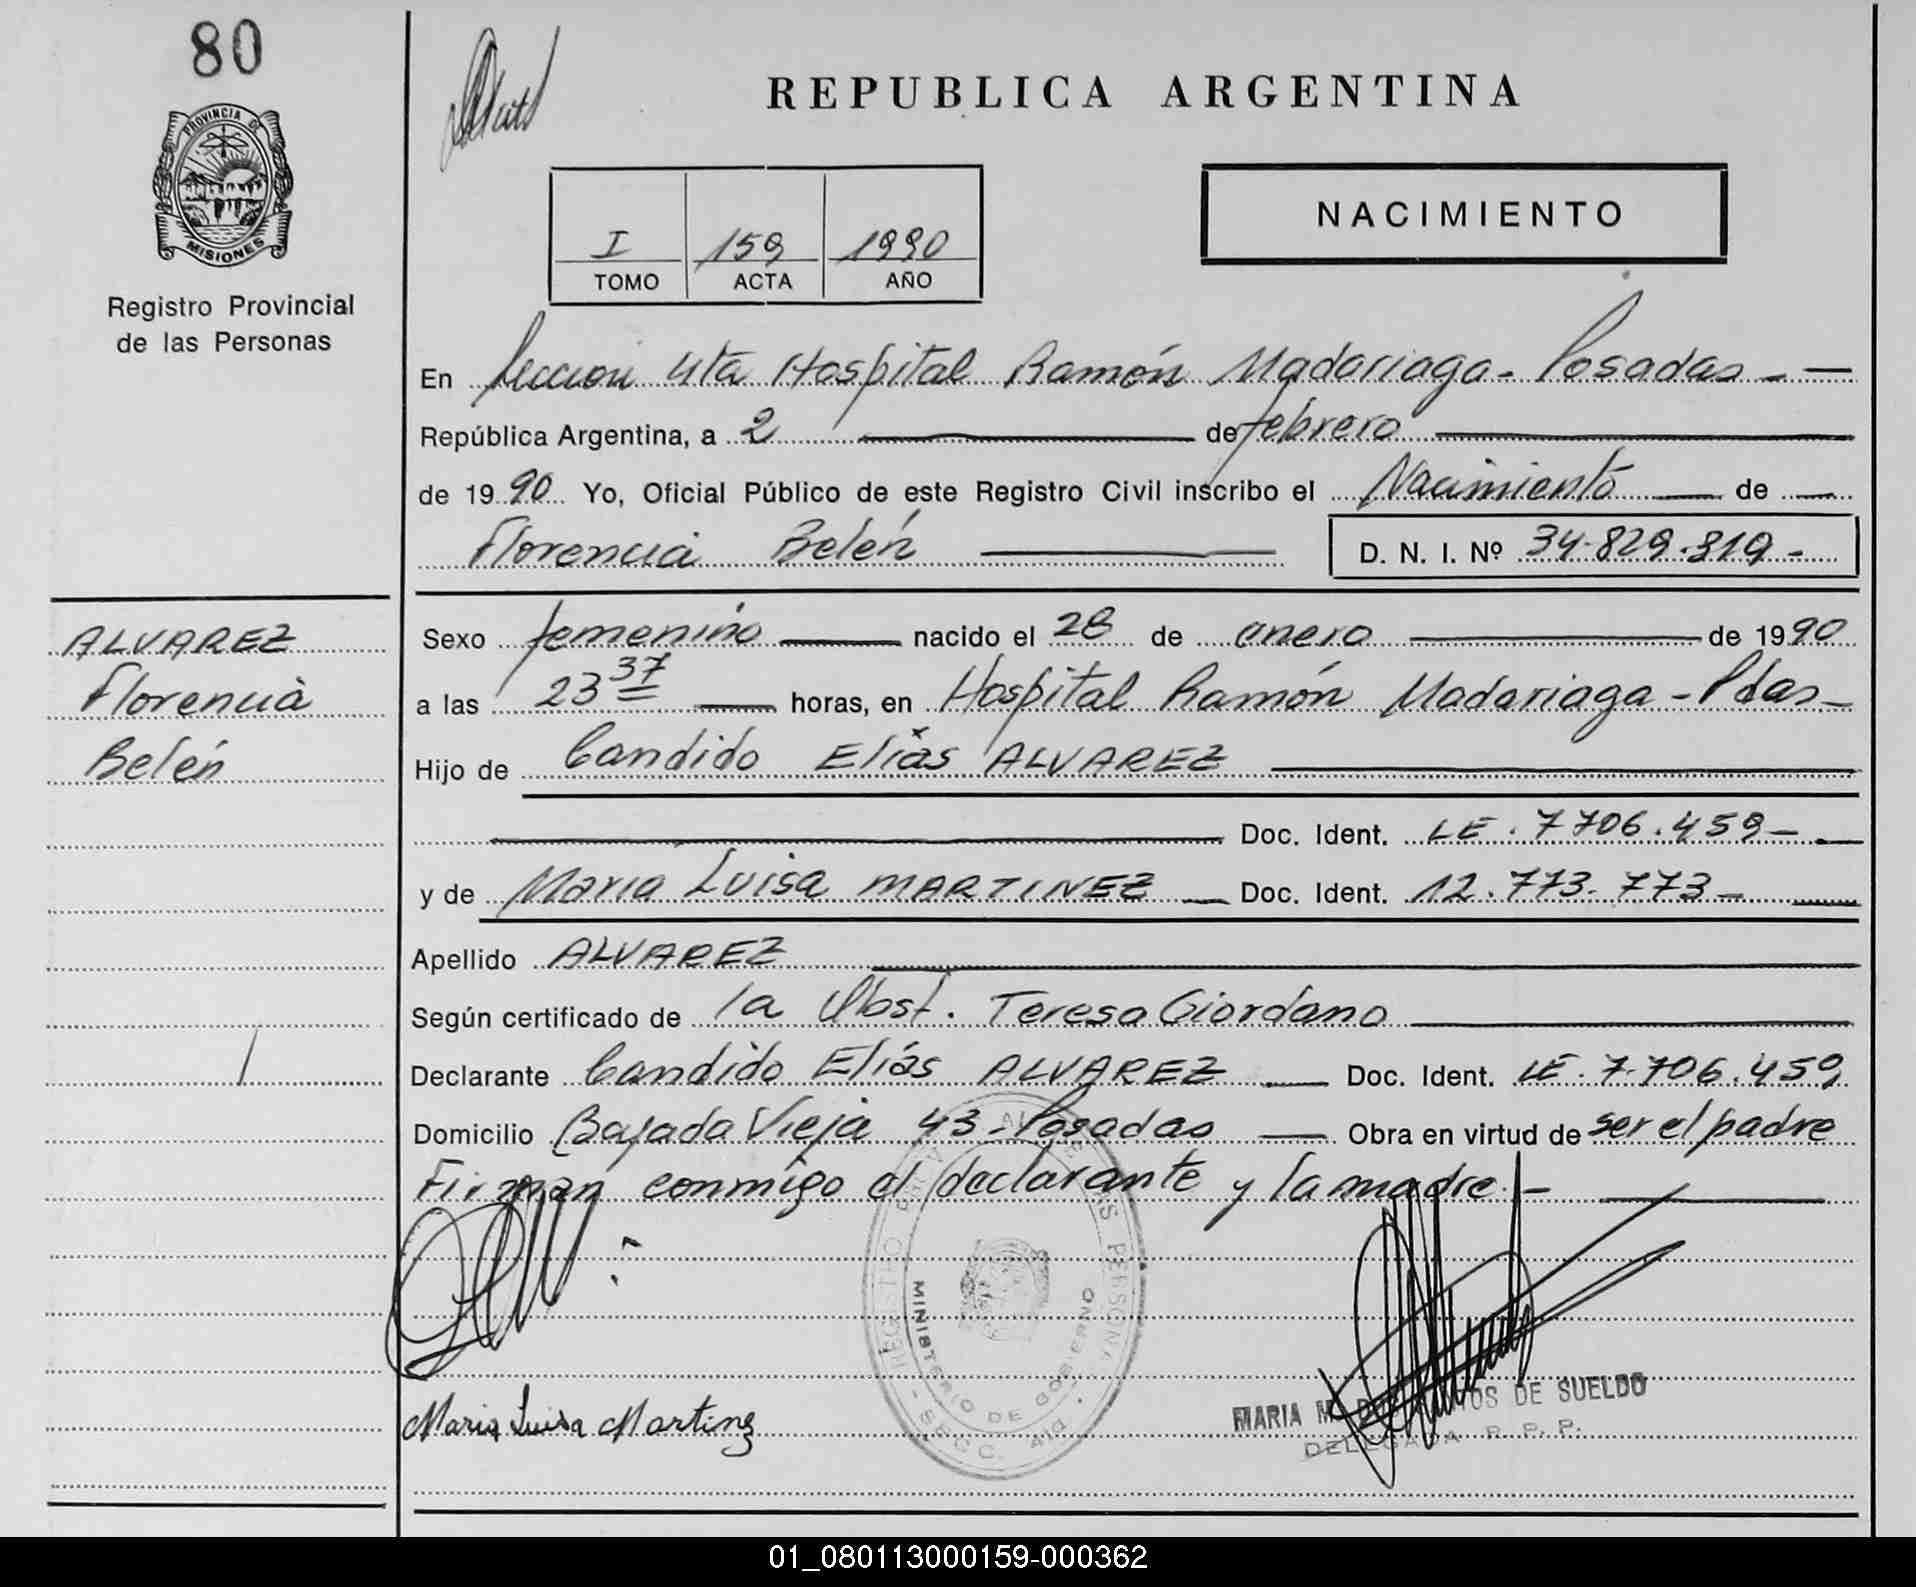 80
PROVINCIA DE
MISIONES
Registro Provincial
de las Personas
ALVAREZ
Florencia
Belén
REPUBLICA ARGENTINA
I 159 1990
TOMO ACTA AÑO
NACIMIENTO
En Sección 4ta Hospital Ramón Madariaga - Posadas -
República Argentina, a 2 de febrero
de 1990 Yo, Oficial Público de este Registro Civil inscribo el Nacimiento de
Florencia Belén D. N. I. Nº 34.829.819 -
Sexo femenino nacido el 28 de enero de 1990
a las 23 37 horas, en Hospital Ramón Madariaga - Pdas -
Hijo de Candido Elías ALVAREZ
Doc. Ident. LE. 7706.459 -
y de Maria Luisa MARTINEZ Doc. Ident. 12.773.773 -
Apellido ALVAREZ
Según certificado de la Obst. Teresa Giordano
Declarante Candido Elías ALVAREZ Doc. Ident. LE. 7.706.459
Domicilio Bajada Vieja 43 - Posadas Obra en virtud de ser el padre
Firman conmigo el declarante y la madre. -
MINISTERIO DE GOBIERNO
SECC. 4ta
Maria Luisa Martinez
MARIA DE SUELDO
DELEGADA R. P. P.
01_080113000159-000362